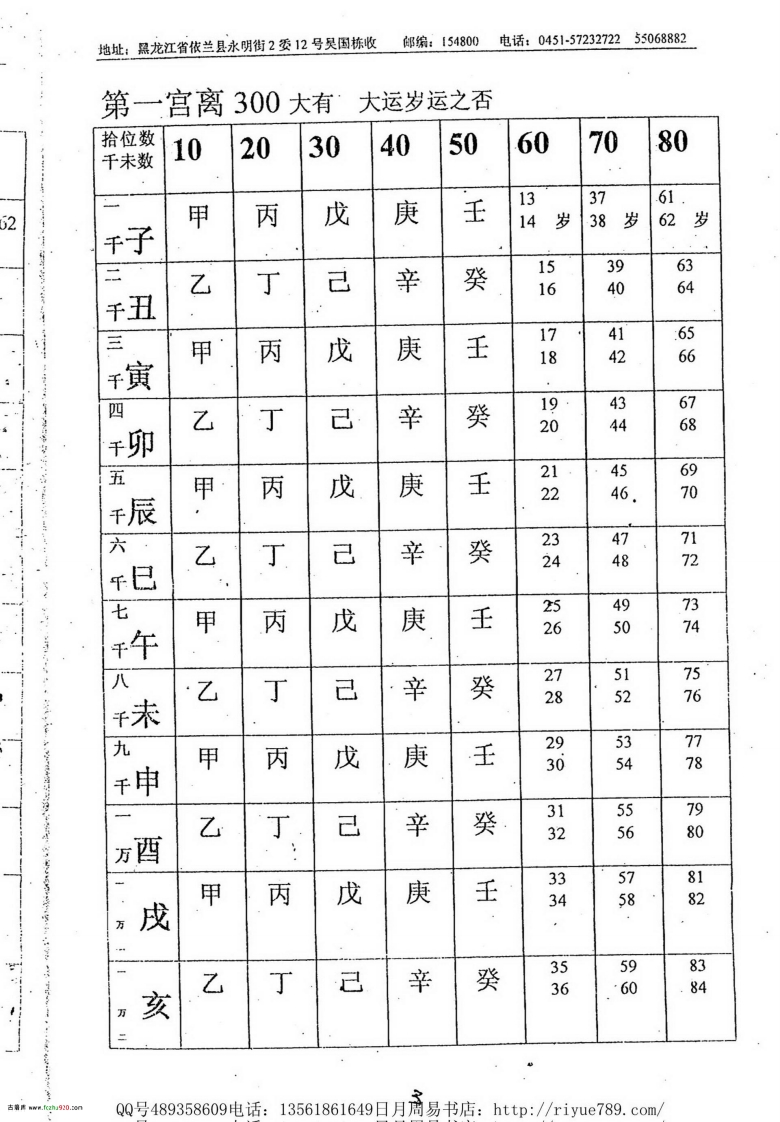 地址：黑龙江省依兰县永明街2委12号吴国栋收 邮编：154800 电话：0451-57232722 55068882
第一宫离300大有 大运岁运之否
拾位数 10 20 30 40 50 60 70 80
千未数
一千子 甲 丙 戊 庚 壬 13 14 岁 37 38 岁 61 62 岁
二千丑 乙 丁 己 辛 癸 15 16 39 40 63 64
三千寅 甲 丙 戊 庚 壬 17 18 41 42 65 66
四千卯 乙 丁 己 辛 癸 19 20 43 44 67 68
五千辰 甲 丙 戊 庚 壬 21 22 45 46 69 70
六千巳 乙 丁 己 辛 癸 23 24 47 48 71 72
七千午 甲 丙 戊 庚 壬 25 26 49 50 73 74
八千未 乙 丁 己 辛 癸 27 28 51 52 75 76
九千申 甲 丙 戊 庚 壬 29 30 53 54 77 78
一万酉 乙 丁 己 辛 癸 31 32 55 56 79 80
一万一戌 甲 丙 戊 庚 壬 33 34 57 58 81 82
一万二亥 乙 丁 己 辛 癸 35 36 59 60 83 84
62
3
古籍库 www.fczhu920.com
QQ号489358609电话：13561861649日月周易书店：http://riyue789.com/